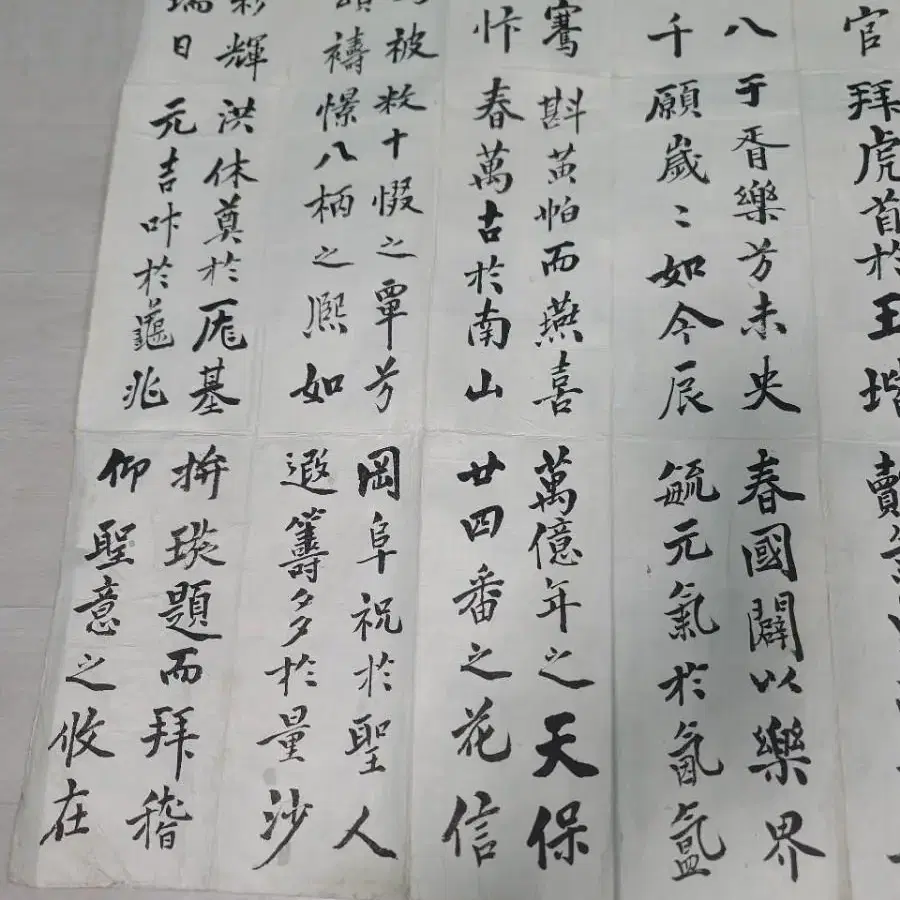 官拜虎首於王堦賣
八于胥樂兮未央春國闢以樂界
千願歲〻如今辰毓元氣於氤氳
騫斟黄怕而燕喜萬億年之天保
忭春萬古於南山廿四番之花信
被敉十惙之覃兮岡阜祝於聖人
禱憬八柄之熈如遐籌多於量沙
彩輝洪休奠於厖基拚琰題而拜稽
瑞日元吉叶於龜兆仰聖意之攸在